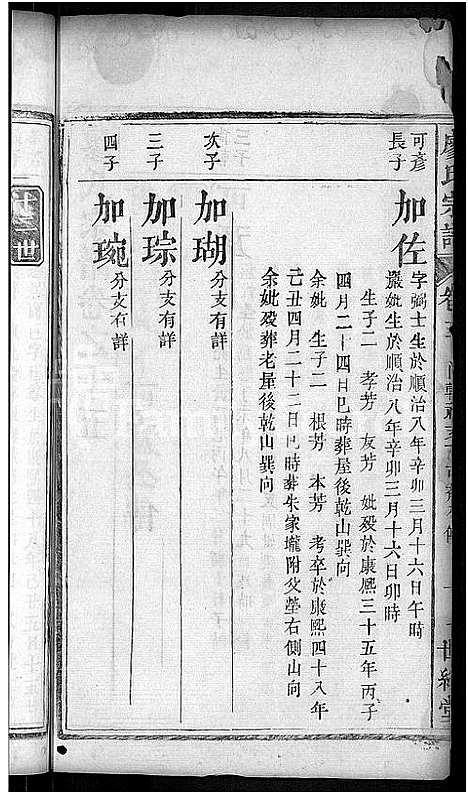 廖氏宗譜
世綵堂
可彥
長子
加佐
字弼士生於順治八年辛卯三月十六日午時
嚴妣生於順治八年辛卯三月十六日卯時
生子二　孝芳　友芳　妣歿於康熙三十五年丙子
四月二十四日巳時葬屋後乾山巽向
余妣　生子二　根芳　本芳　考卒於康熙四十八年
己丑四月二十二日巳時葬朱家壠附父塋右側山向
余妣歿葬老量後乾山巽向
次子
加瑚
分支有詳
三子
加琮
分支有詳
四子
加琬
分支有詳
廿三世